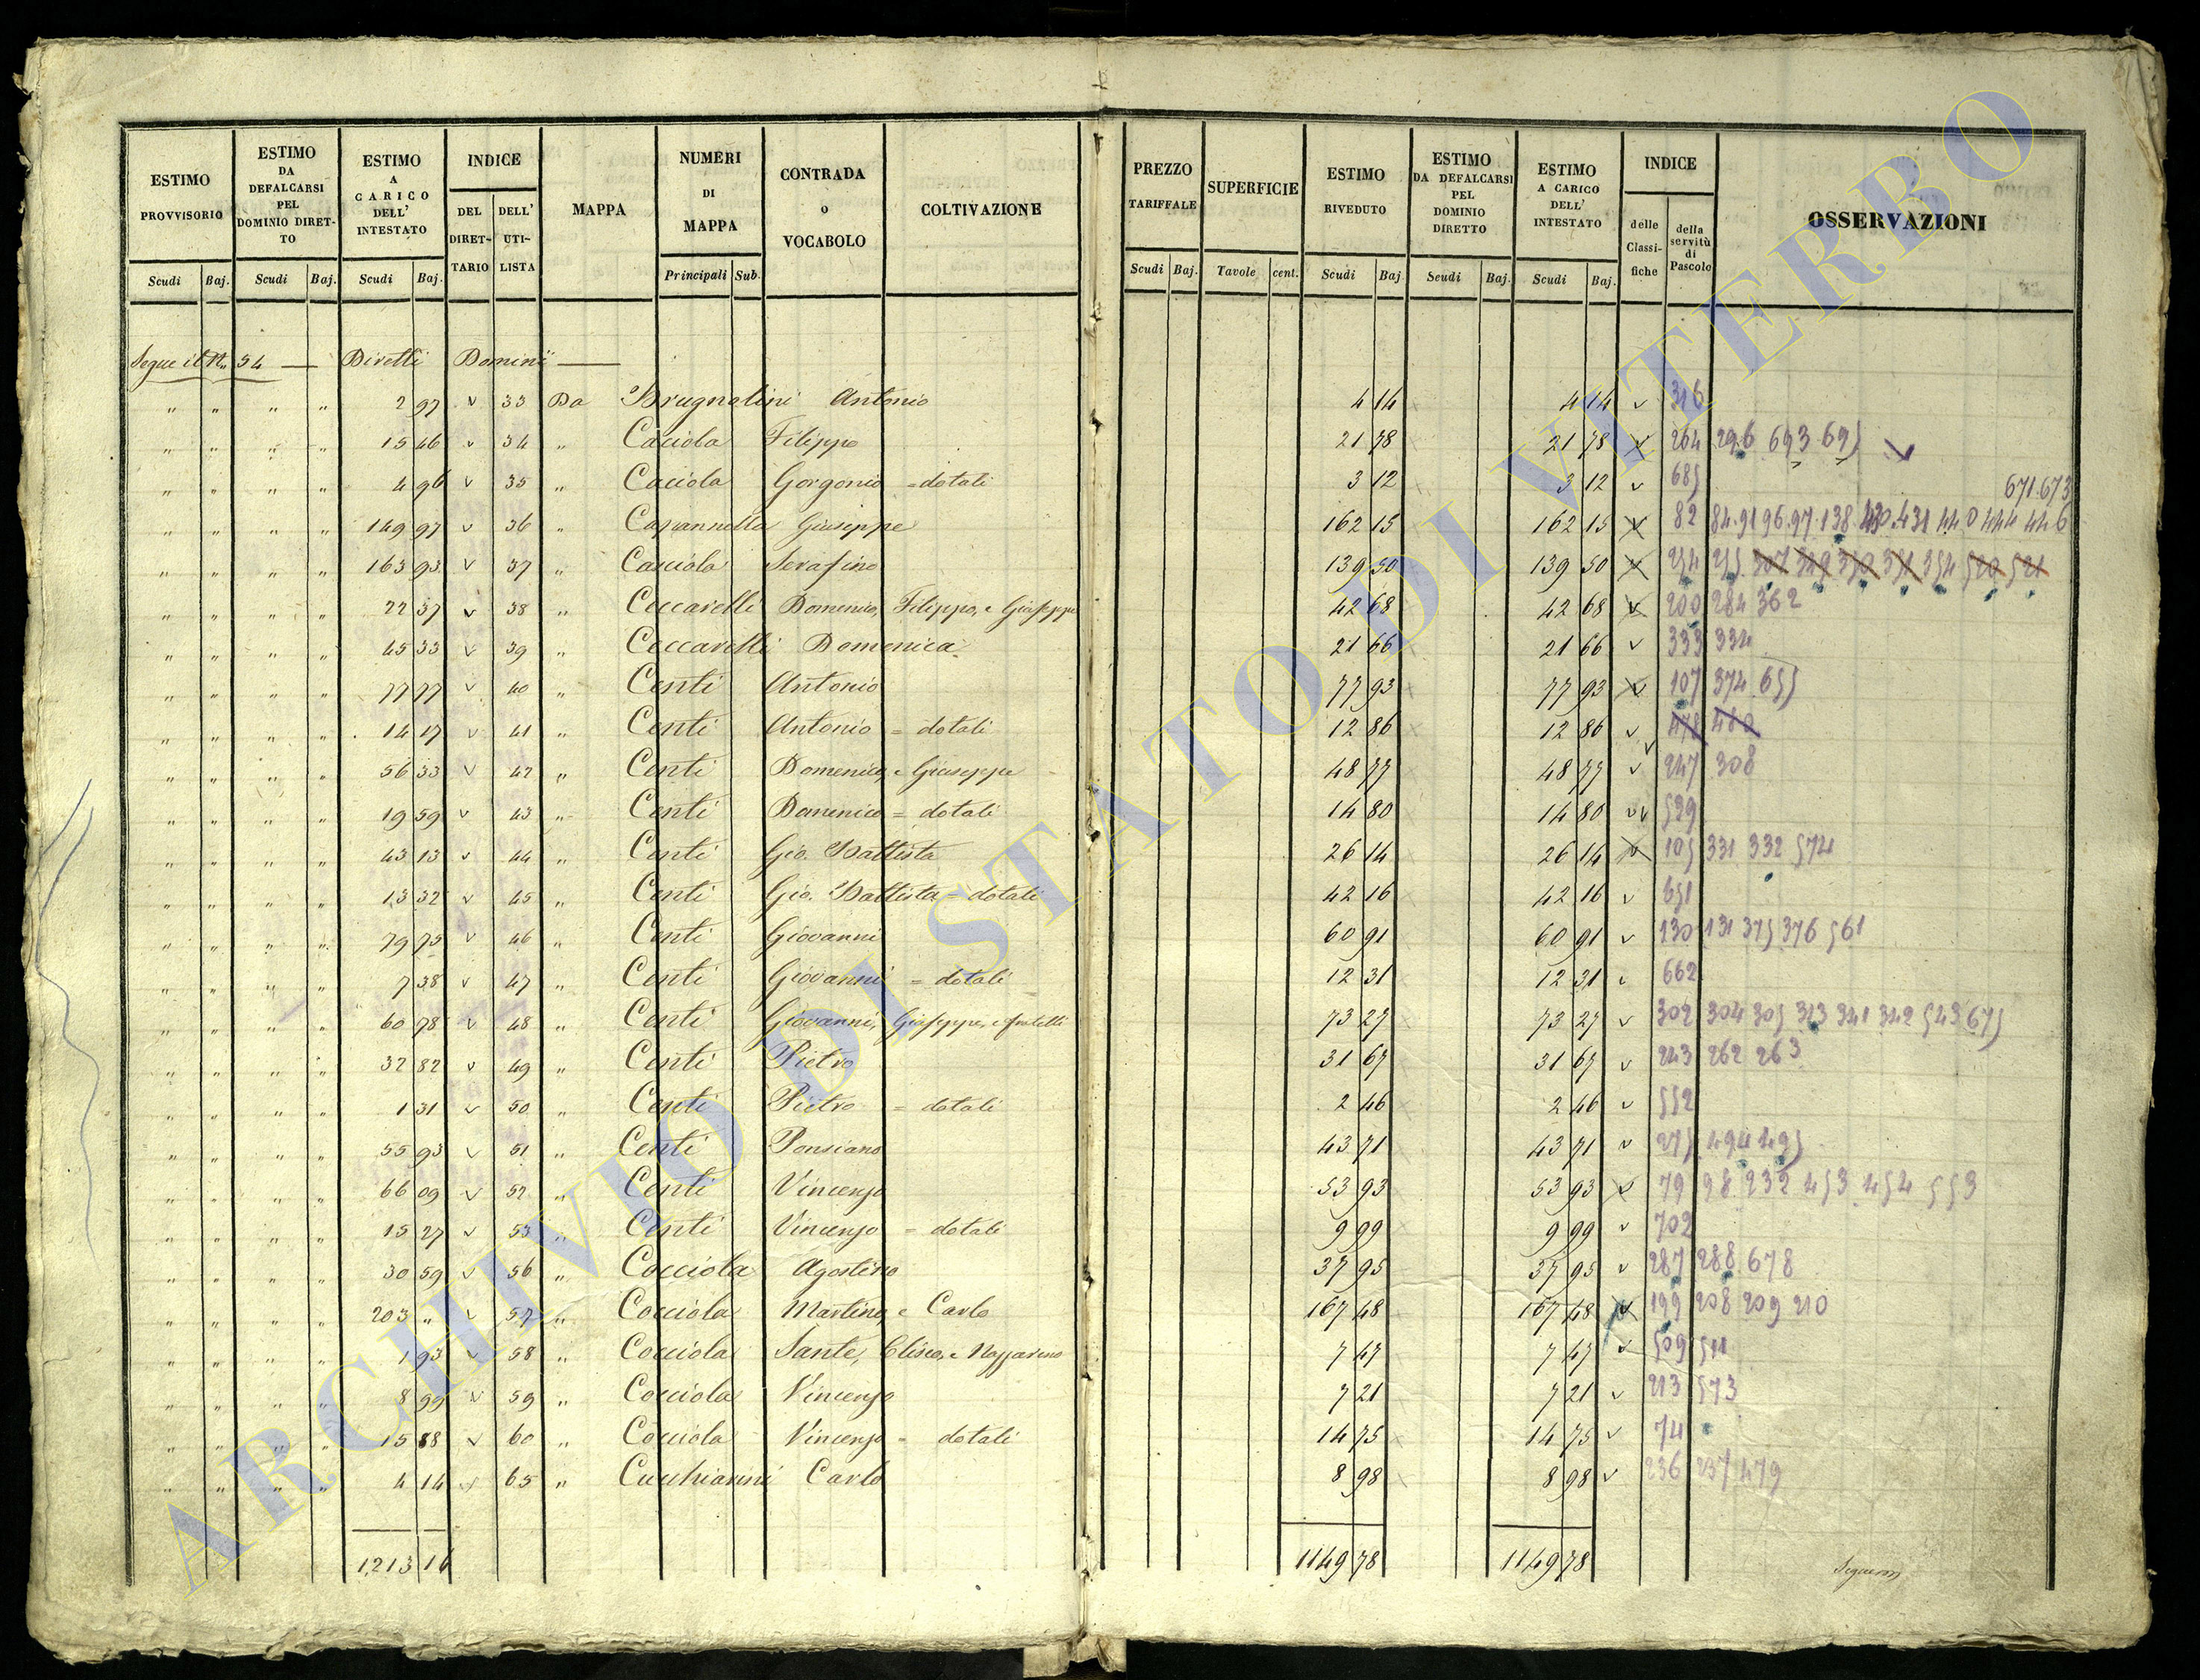 ESTIMO PROVVISORIO | ESTIMO DA DEFALCARSI PEL DOMINIO DIRETTO | ESTIMO A CARICO DELL' INTESTATO | INDICE | MAPPA | NUMERI DI MAPPA | CONTRADA O VOCABOLO | COLTIVAZIONE | PREZZO TARIFFALE | SUPERFICIE | ESTIMO RIVEDUTO | ESTIMO DA DEFALCARSI PEL DOMINIO DIRETTO | ESTIMO A CARICO DELL' INTESTATO | INDICE | OSSERVAZIONI
DEL DIRETTARIO | DELL' UTILISTA | delle Classifiche | della servitù di Pascolo
Scudi | Baj. | Scudi | Baj. | Scudi | Baj. | Principali | Sub. | Scudi | Baj. | Tavole | cent. | Scudi | Baj. | Scudi | Baj. | Scudi | Baj.
Segue il N. 54 — Diretti Dominii —
" " " " 2 97 v 33 Da Brugnolini Antonio 4 14 4 14 v 316
" " " " 15 46 v 34 " Cacciola Filippo 21 78 21 78 v 264 296 693 695
" " " " 4 96 v 35 " Cacciola Gorgonio = dotali 3 12 3 12 v 685
671.673
" " " " 149 97 v 36 " Capannella Giuseppe 162 15 162 15 v 82 84.91 96.97.138.430.431 440 444 446
" " " " 163 93 v 37 " Casciola Serafino 139 50 139 50 v 254 255 307 349 350 351 354 520 521
" " " " 22 37 v 38 " Ceccarelli Domenico, Filippo, e Giuseppe 42 68 42 68 v 200 284 362
" " " " 45 33 v 39 " Ceccarelli Domenica 21 66 21 66 v 333 334
" " " " 77 77 v 40 " Centi Antonio 77 93 77 93 v 107 374 655
" " " " 14 17 v 41 " Centi Antonio = dotali 12 86 12 86 v 478 480
" " " " 56 33 v 42 " Centi Domenico, e Giuseppe 48 77 48 77 v 247 308
" " " " 19 59 v 43 " Centi Domenico = dotali 14 80 14 80 v 529
" " " " 43 13 v 44 " Centi Gio. Battista 26 14 26 14 v 105 331 332 574
" " " " 13 32 v 45 " Centi Gio. Battista = dotali 42 16 42 16 v 651
" " " " 79 75 v 46 " Centi Giovanni 60 91 60 91 v 130 131 375 376 561
" " " " 7 38 v 47 " Centi Giovanni = dotali 12 31 12 31 v 662
" " " " 60 78 v 48 " Centi Giovanni, Giuseppe, e fratelli 73 27 73 27 v 302 304 305 313 341 342 543 675
" " " " 32 82 v 49 " Centi Pietro 31 67 31 67 v 243 262 263
" " " " 1 31 v 50 " Centi Pietro = dotali 2 46 2 46 v 552
" " " " 55 93 v 51 " Centi Ponsiano 43 71 43 71 v 275 494 495
" " " " 66 09 v 52 " Centi Vincenzo 53 93 53 93 v 79 98 232 453 454 553
" " " " 15 27 v 53 " Centi Vincenzo = dotali 9 99 9 99 v 702
" " " " 30 59 v 56 " Cocciola Agostino 37 95 37 95 v 287 288 678
" " " " 203 " v 57 " Cocciola Martino, e Carlo 167 48 167 48 v 199 208 209 210
" " " " 1 93 v 58 " Cocciola Sante, Eliseo, e Nazzareno 7 47 7 47 v 509 511
" " " " 8 99 v 59 " Cocciola Vincenzo 7 21 7 21 v 213 573
" " " " 15 88 v 60 " Cocciola Vincenzo = dotali 14 75 14 75 v 74
" " " " 4 14 v 65 " Cucchiarini Carlo 8 98 8 98 v 236 237 479
1213 16 1149 78 1149 78
ARCHIVIO DI STATO DI VITERBO